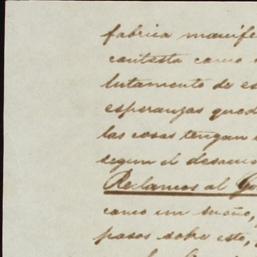 fabrica manife
contesta como
lutamente de es
esperanzas qued
las cosas tengan
segun el deseo
Reclamos al Go
como un sueño,
pasos sobre esto,